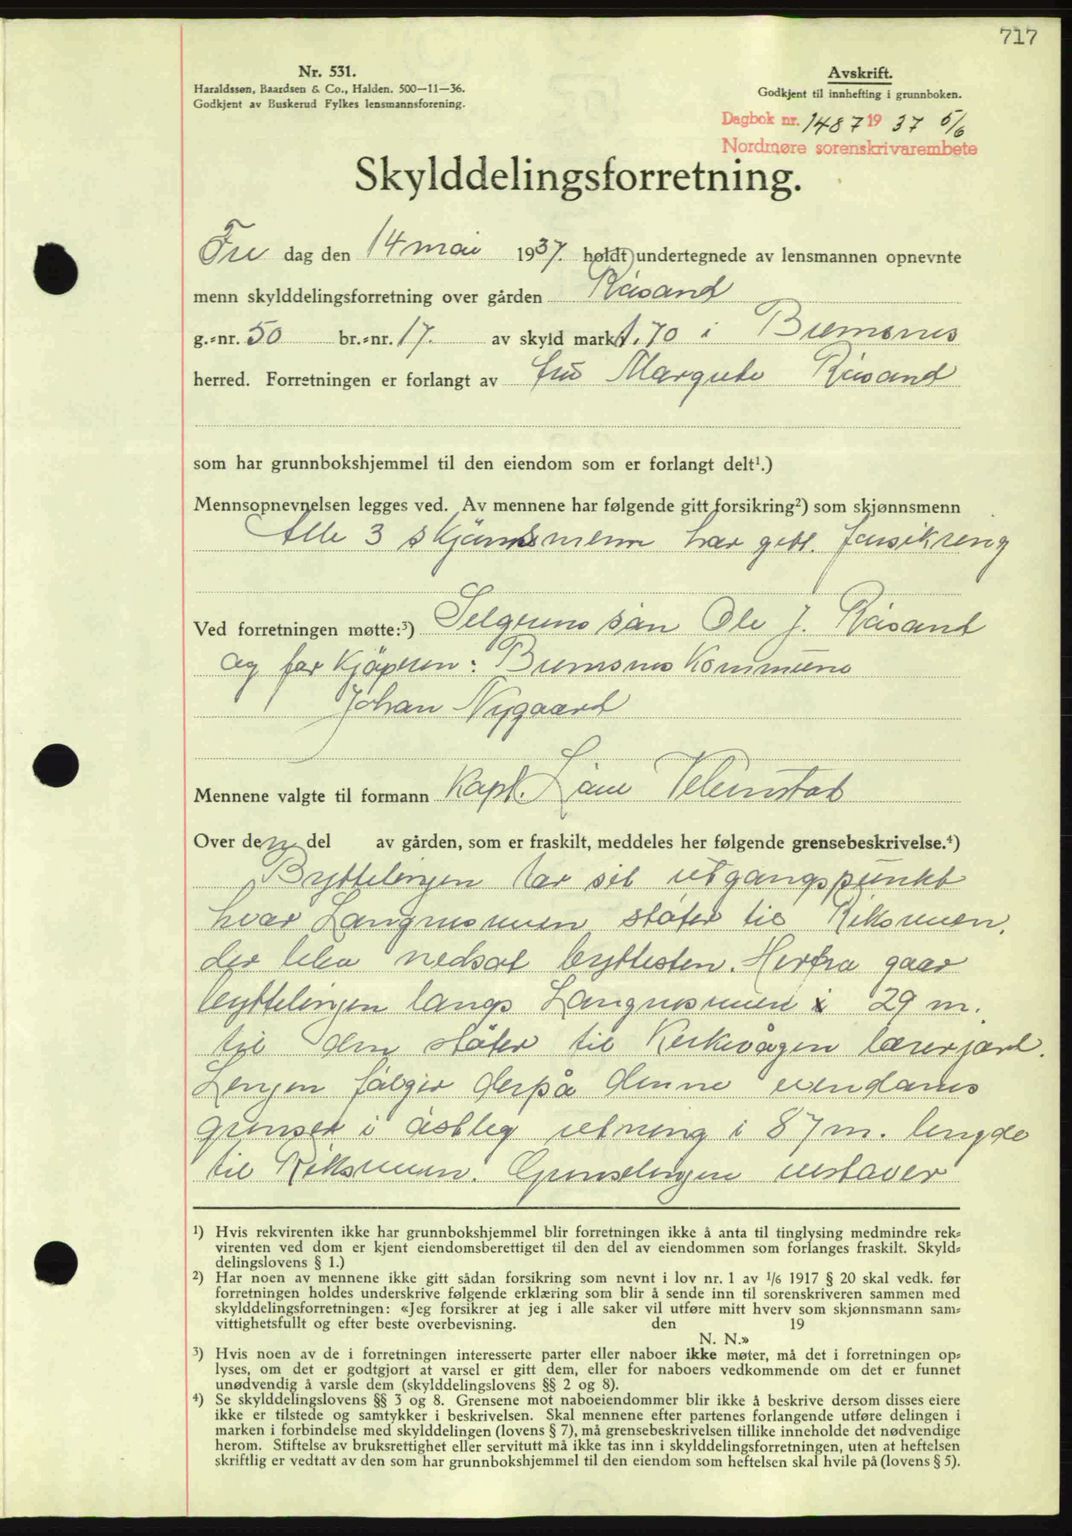 717
Nr. 531.
Haraldssøn, Baardsen & Co., Halden. 500—11—36.
Godkjent av Buskerud Fylkes lensmannsforening.
Avskrift.
Godkjent til innhefting i grunnboken.
Dagbok nr. 1487 19 37 5/6
Nordmøre sorenskrivarembete
Skylddelingsforretning.
Fre dag den 14 mai 1937. holdt undertegnede av lensmannen opnevnte
menn skylddelingsforretning over gården Røsand
g.=nr. 50 br.=nr. 17. av skyld mark 1.70 i Bremsnes
herred. Forretningen er forlangt av fru Margrete Røsand
som har grunnbokshjemmel til den eiendom som er forlangt delt¹.)
Mennsopnevnelsen legges ved. Av mennene har følgende gitt forsikring²) som skjønnsmenn
Alle 3 skjønnsmenn har gitt. forsikring
Ved forretningen møtte:³) Selgerens søn Ole J. Røsand
og for kjøperen: Bremsnes Kommune
Johan Nygaard
Mennene valgte til formann Kapt.
Over den del av gården, som er fraskilt, meddeles her følgende grensebeskrivelse.⁴)
Byttelinjen tar sit utgangspunkt
hvor Langnesveien støter til Riksveien.
der blev nedsat byttesten. Herfra gaar
byttelinjen langs Langnesveien i 29 m.
til den støter til Kirkevågen lærerjord.
Linjen følger derpå denne eiendoms
grenser i østleg retning i 87 m. lengde
til Riksveien. Grenselinjen
¹) Hvis rekvirenten ikke har grunnbokshjemmel blir forretningen ikke å anta til tinglysing medmindre rek=
virenten ved dom er kjent eiendomsberettiget til den del av eiendommen som forlanges fraskilt. Skyld=
delingslovens § 1.)
²) Har noen av mennene ikke gitt sådan forsikring som nevnt i lov nr. 1 av ¹/₆ 1917 § 20 skal vedk. før
forretningen holdes underskrive følgende erklæring som blir å sende inn til sorenskriveren sammen med
skylddelingsforretningen: «Jeg forsikrer at jeg i alle saker vil utføre mitt hverv som skjønnsmann sam=
vittighetsfullt og efter beste overbevisning. den 19
N. N.»
³) Hvis noen av de i forretningen interesserte parter eller naboer ikke møter, må det i forretningen op=
lyses, om det er godtgjort at varsel er gitt dem, eller for naboers vedkommende om det er funnet
unødvendig å varsle dem (skylddelingslovens §§ 2 og 8).
⁴) Se skylddelingslovens §§ 3 og 8. Grensene mot naboeiendommer blir ikke å beskrive dersom disses eiere
ikke er tilstede og samtykker i beskrivelsen. Skal mennene efter partenes forlangende utføre delingen i
marken i forbindelse med skylddelingen (lovens § 7), må grensebeskrivelsen tillike inneholde det nødvendige
herom. Stiftelse av bruksrettighet eller servitutt må ikke tas inn i skylddelingsforretningen, uten at heftelsen
skriftlig er vedtatt av den som har grunnbokshjemmel til den eiendom som heftelsen skal hvile på (lovens § 5).